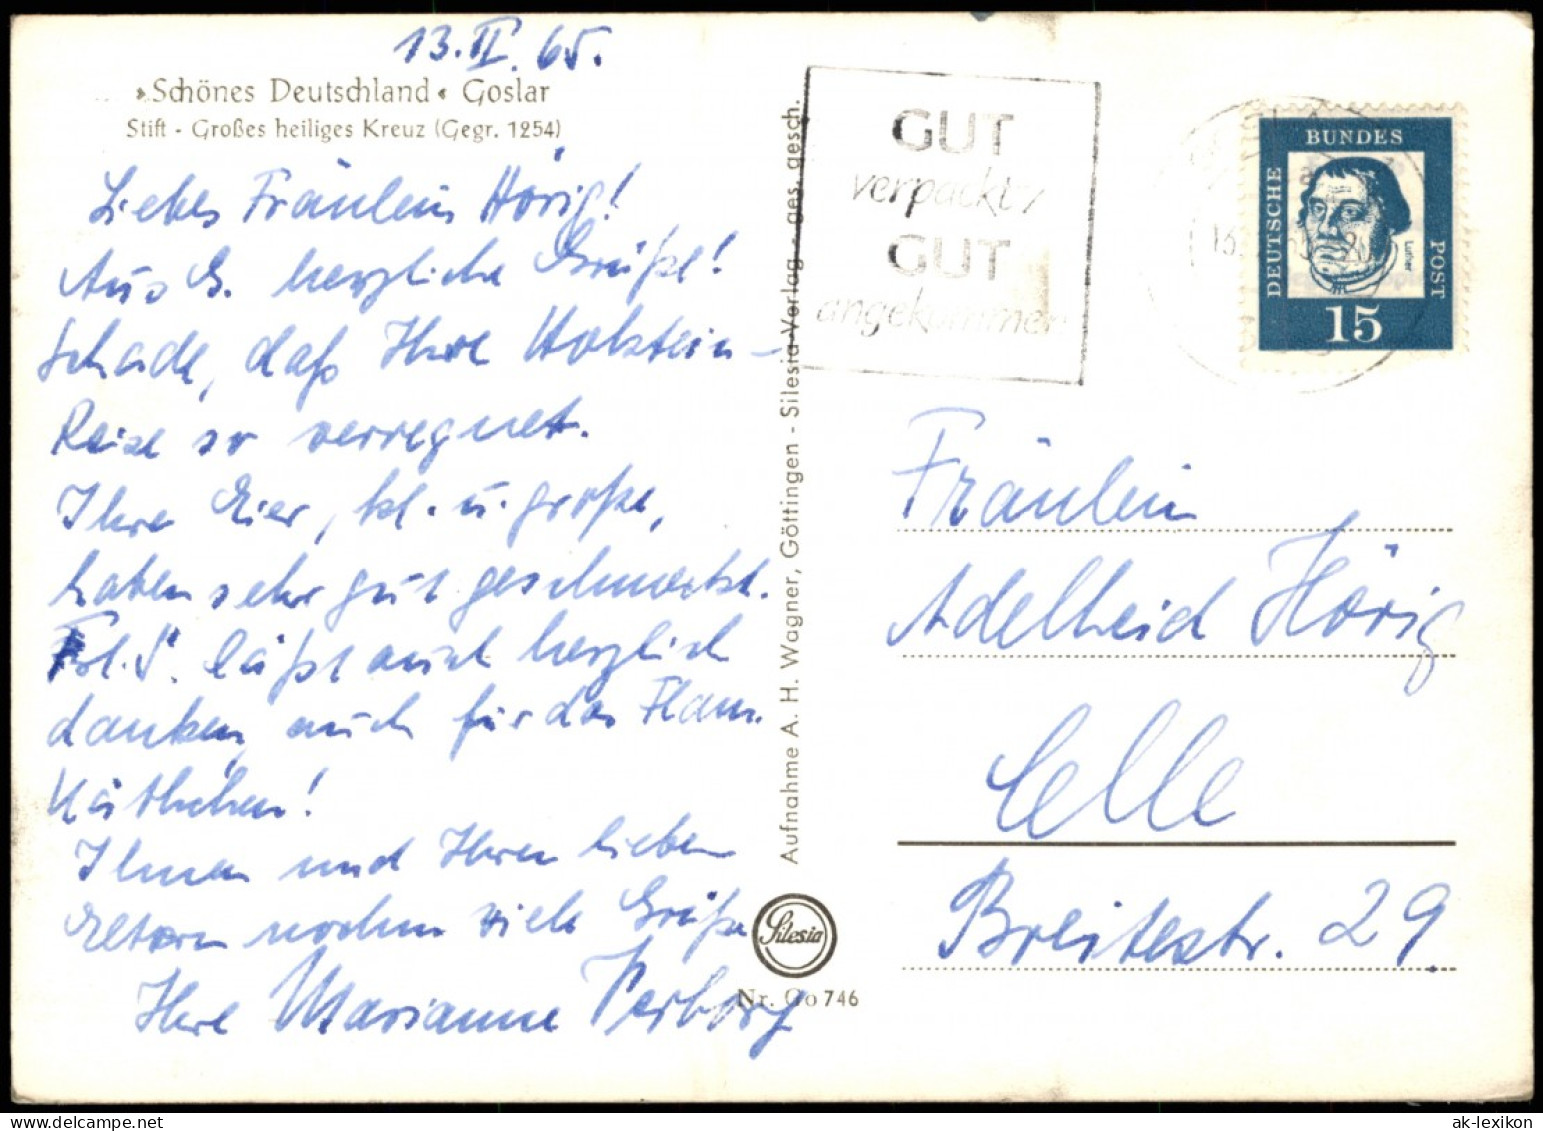 13. II. 65.
»Schönes Deutschland« Goslar
Stift - Großes heiliges Kreuz (Gegr. 1254)
Liebes Fräulein Hörig!
Aus G. herzliche Grüße!
Schade, daß Ihre Holstein-
Reise so verregnet.
Ihre Eier, kl. u. große,
haben sehr gut geschmeckt.
Frl. S. läßt auch herzlich
danken, auch für das
Kästchen!
Ihnen und Ihren lieben
Eltern noch viele Grüße
Ihre Marianne
Aufnahme A. H. Wagner, Göttingen - Silesia-Verlag - ges. gesch.
Silesia
Nr. Go 746
GUT
verpackt
GUT
angekommen
DEUTSCHE
BUNDES
POST
Luther
15
Fräulein
Adelheid Hörig
Celle
Breitestr. 29
ak-lexikon